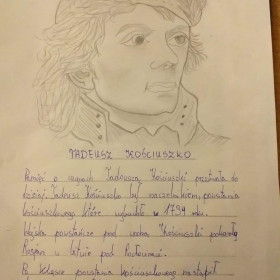 TADEUSZ KOŚCIUSZKO
Pamięć o czynach Tadeusza Kościuszki przetrwała do
dzisiaj. Tadeusz Kościuszko był naczelnikiem powstania
kościuszkowskiego które wybuchło w 1794 roku.
Wojska powstańcze pod wodzą Kościuszki pokonały
Rosjan w bitwie pod Racławicami.
Po klęsce powstania kościuszkowskiego nastąpił